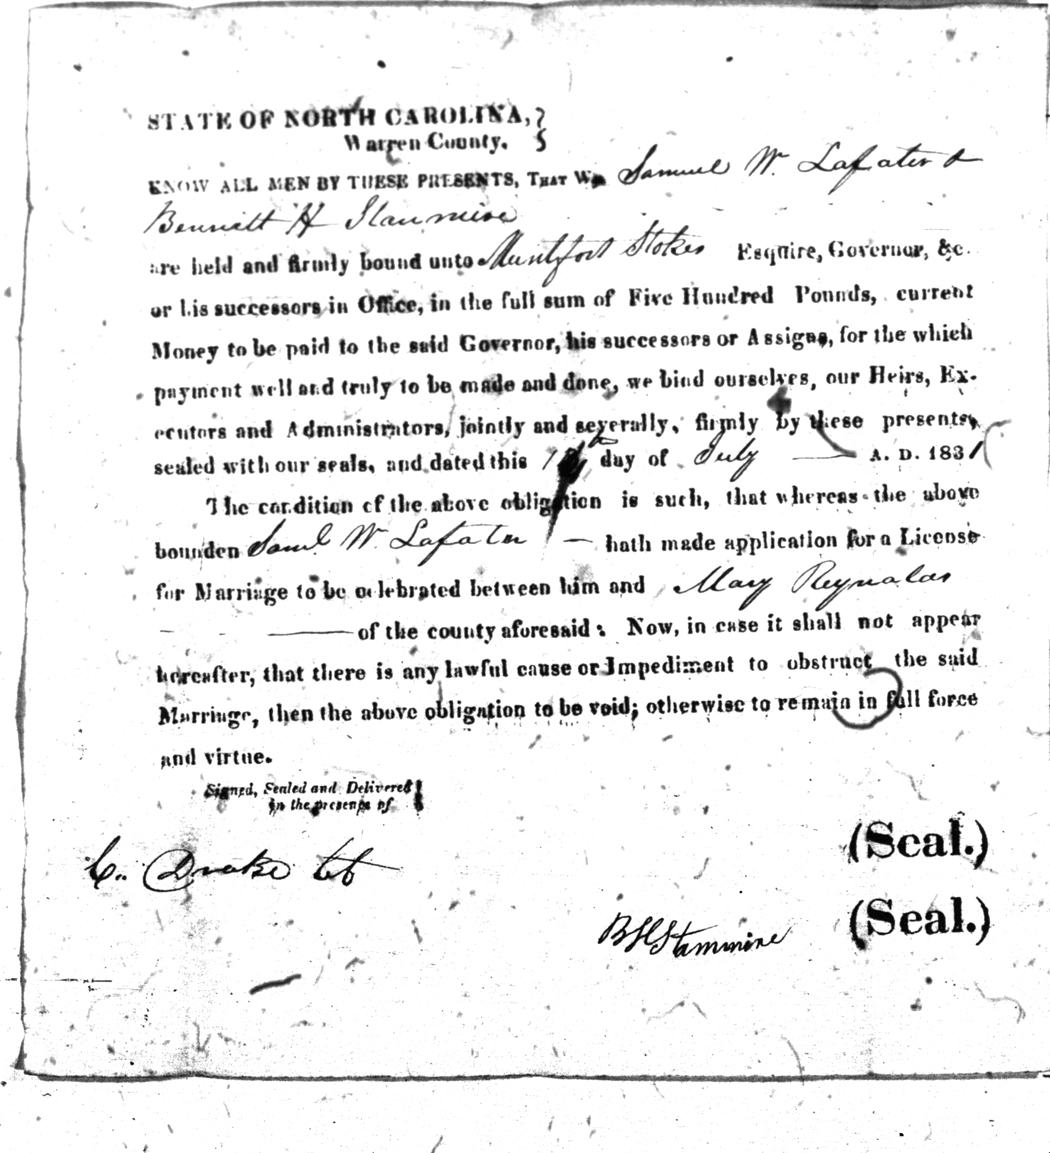 STATE OF NORTH CAROLINA,
Warren County.
KNOW ALL MEN BY THESE PRESENTS, THAT We Samuel W. Lafater &
Bennett H Stammire
are held and firmly bound unto Muntfort Stokes Esquire, Governor, &c.
or his successors in Office, in the full sum of Five Hundred Pounds, current
Money to be paid to the said Governor, his successors or Assigns, for the which
payment well and truly to be made and done, we bind ourselves, our Heirs, Ex-
ecutors and Administrators, jointly and severally, firmly by these presents,
sealed with our seals, and dated this day of July — A. D. 1831
The condition of the above obligation is such, that whereas the above
bounden Saml W. Lafater — hath made application for a License
for Marriage to be celebrated between him and Mary Reynolds
— of the county aforesaid: Now, in case it shall not appear
hereafter, that there is any lawful cause or Impediment to obstruct the said
Marriage, then the above obligation to be void; otherwise to remain in full force
and virtue.
Signed, Sealed and Delivered
in the presence of
(Seal.)
C. Drake
B H Stammire (Seal.)